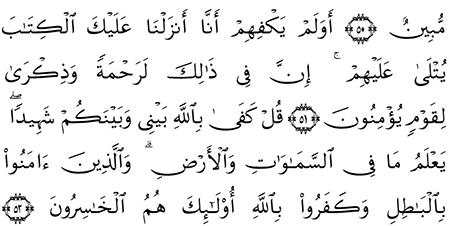 مُّبِينٌ ۝٥٠ أَوَلَمْ يَكْفِهِمْ أَنَّا أَنزَلْنَا عَلَيْكَ الْكِتَٰبَ
يُتْلَىٰ عَلَيْهِمْ ۚ إِنَّ فِى ذَٰلِكَ لَرَحْمَةً وَذِكْرَىٰ
لِقَوْمٍ يُؤْمِنُونَ ۝٥١ قُلْ كَفَىٰ بِاللَّهِ بَيْنِى وَبَيْنَكُمْ شَهِيدًا ۖ
يَعْلَمُ مَا فِى السَّمَٰوَٰتِ وَالْأَرْضِ ۗ وَالَّذِينَ ءَامَنُوا۟
بِالْبَٰطِلِ وَكَفَرُوا۟ بِاللَّهِ أُو۟لَٰٓئِكَ هُمُ الْخَٰسِرُونَ ۝٥٢